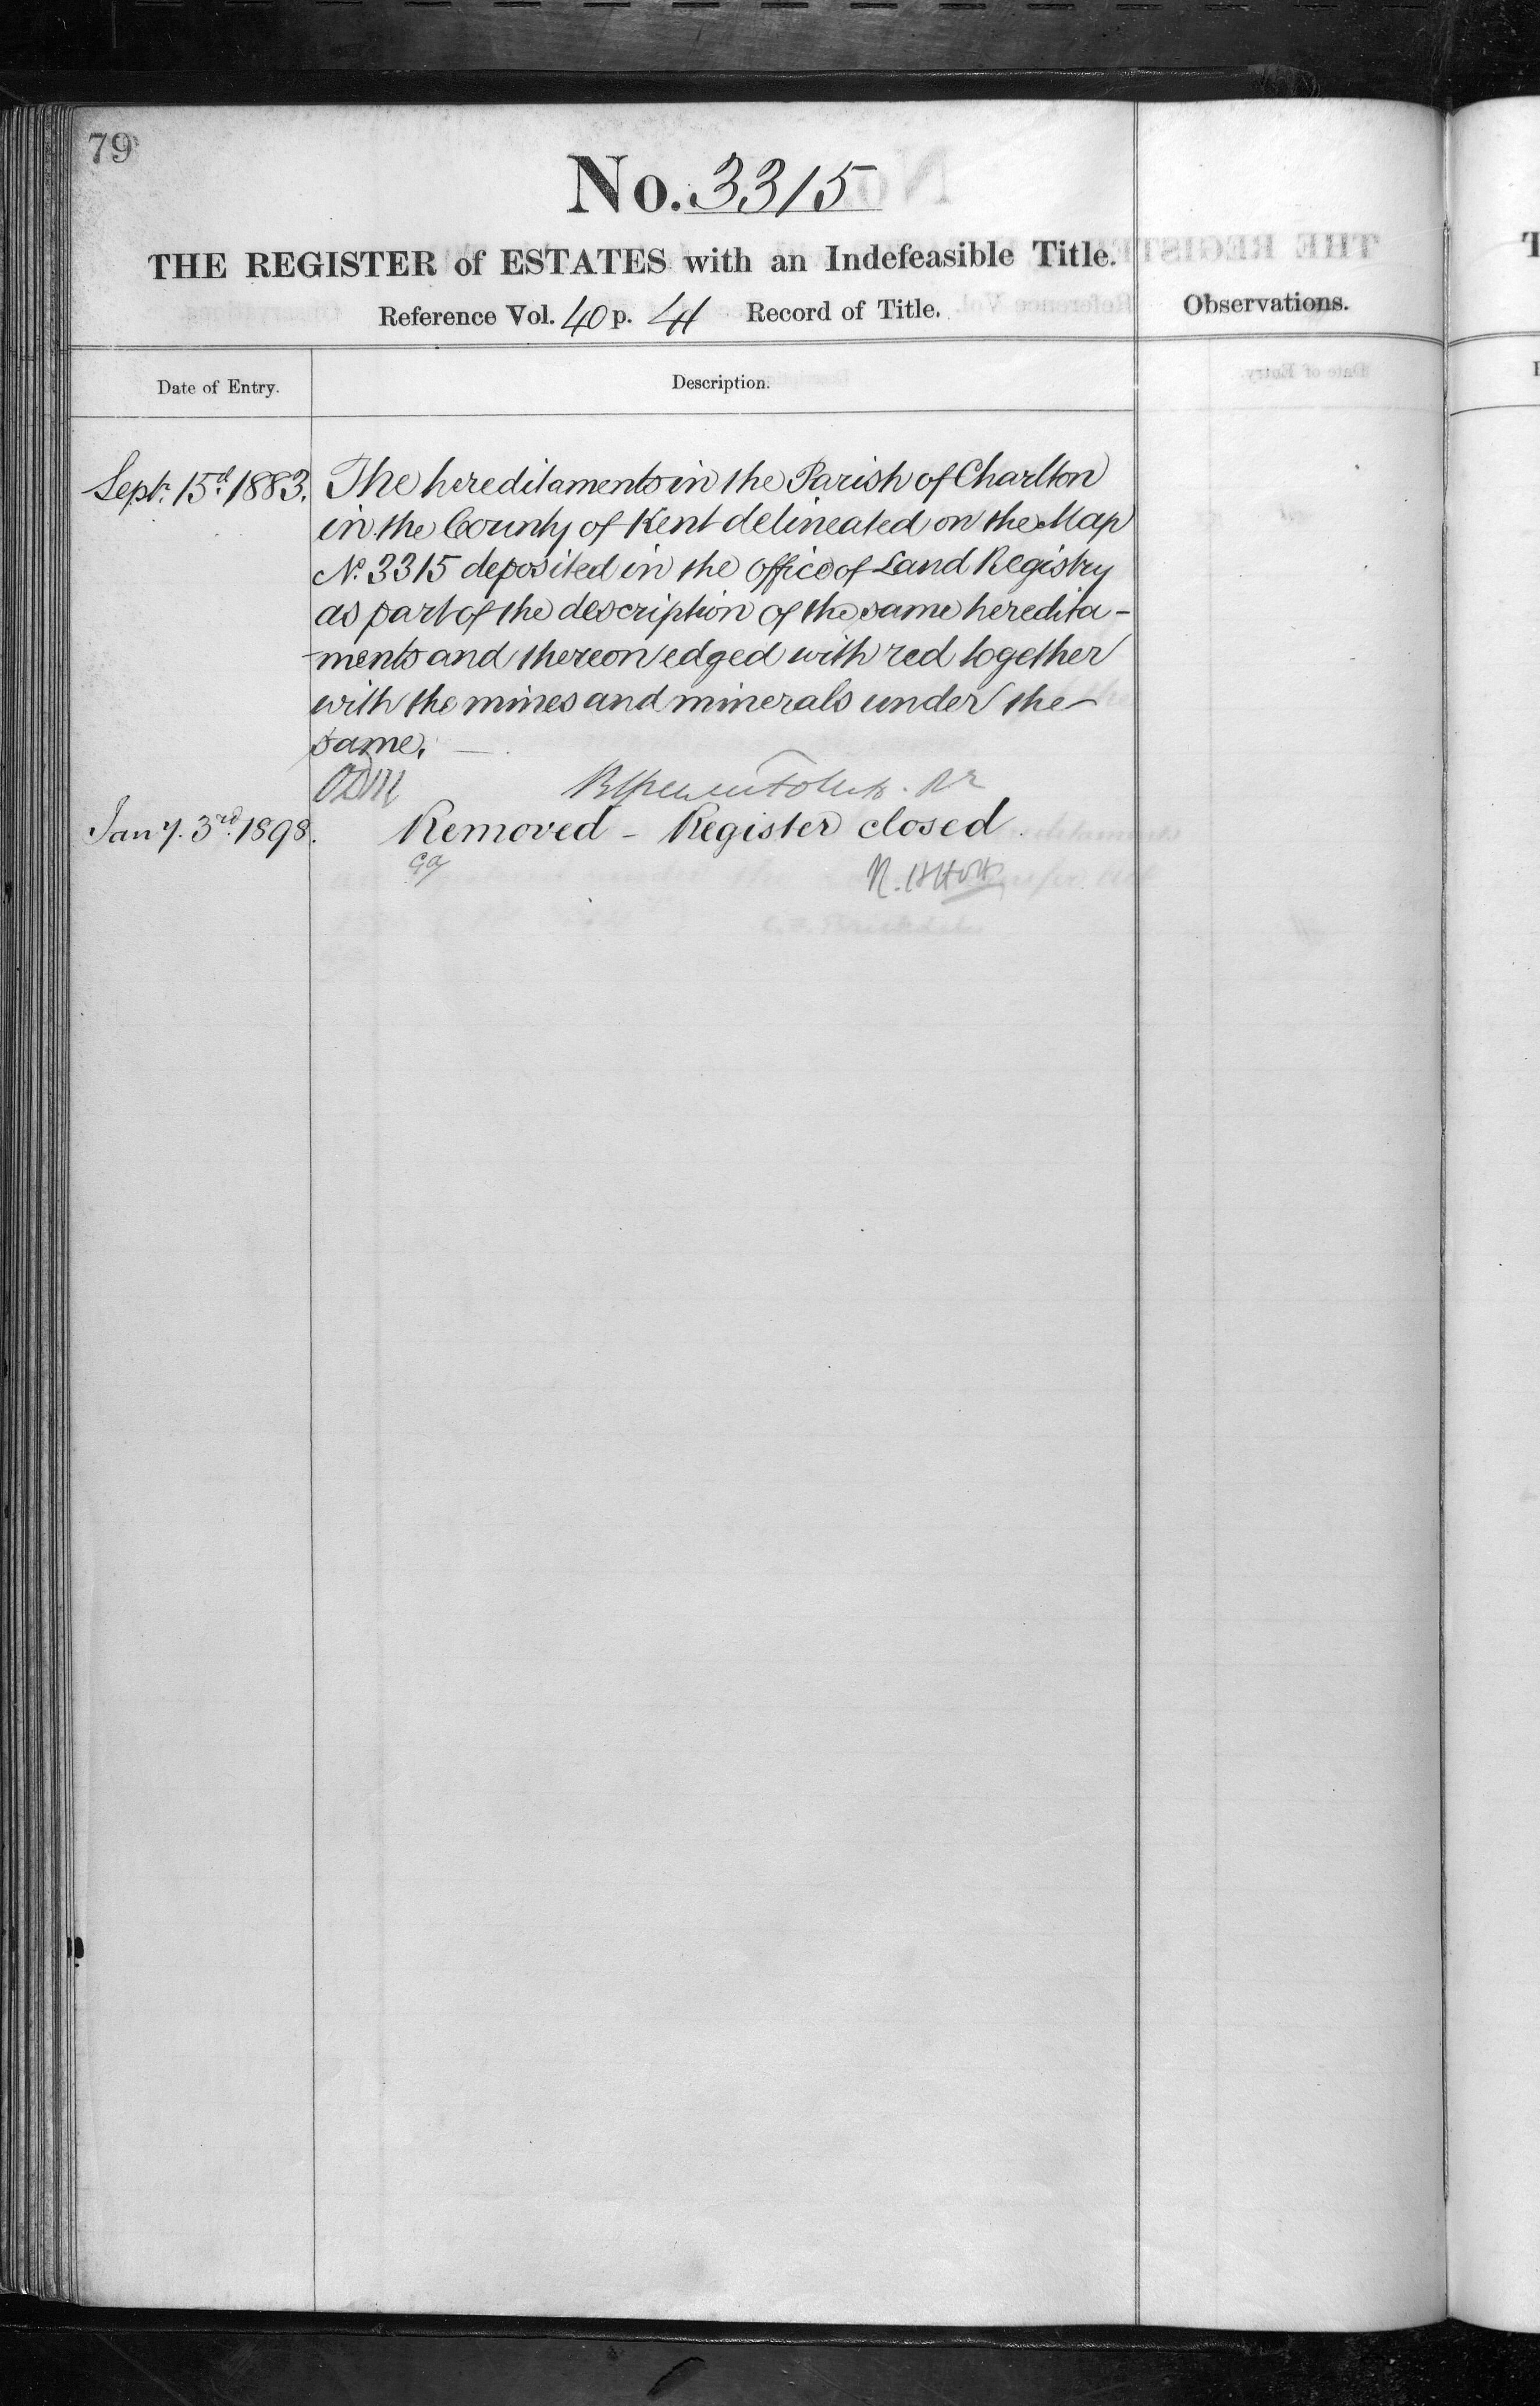 79
No. 3315
THE REGISTER of ESTATES with an Indefeasible Title.
Reference Vol. 40 p. 41 Record of Title.
Observations.
Date of Entry.
Description.
Sept. 15th 1883. The hereditaments in the Parish of Charlton
in the County of Kent delineated on the Map
No. 3315 deposited in the office of Land Registry
as part of the description of the same heredita-
-ments and thereon edged with red together
with the mines and minerals under the
same.
Jany. 3rd. 1898. Removed - Register closed